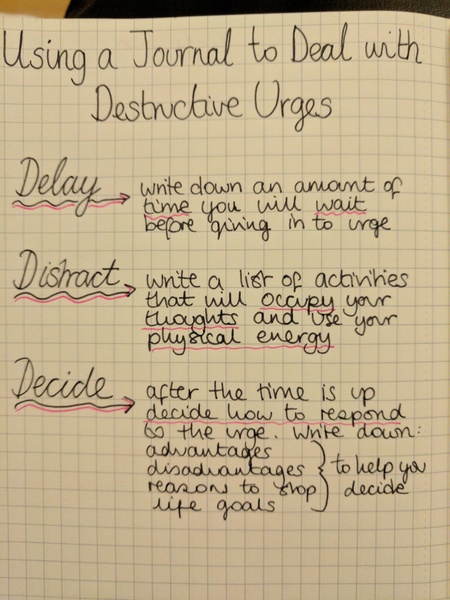 Using a Journal to Deal with
Destructive Urges
Delay → write down an amount of
time you will wait
before giving in to urge
Distract → write a list of activities
that will occupy your
thoughts and use your
physical energy
Decide → after the time is up
decide how to respond
to the urge. Write down:
advantages
disadvantages } to help you
reasons to stop decide
life goals